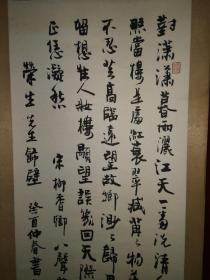 對瀟瀟暮雨灑江天一番洗清
照當樓是處紅衰翠減苒苒物
不忍登高臨遠望故鄉渺渺歸思
留想佳人妝樓顒望誤幾回天際
正恁凝愁 宋柳耆卿八聲
榮生先生歸壁 癸酉仲春書